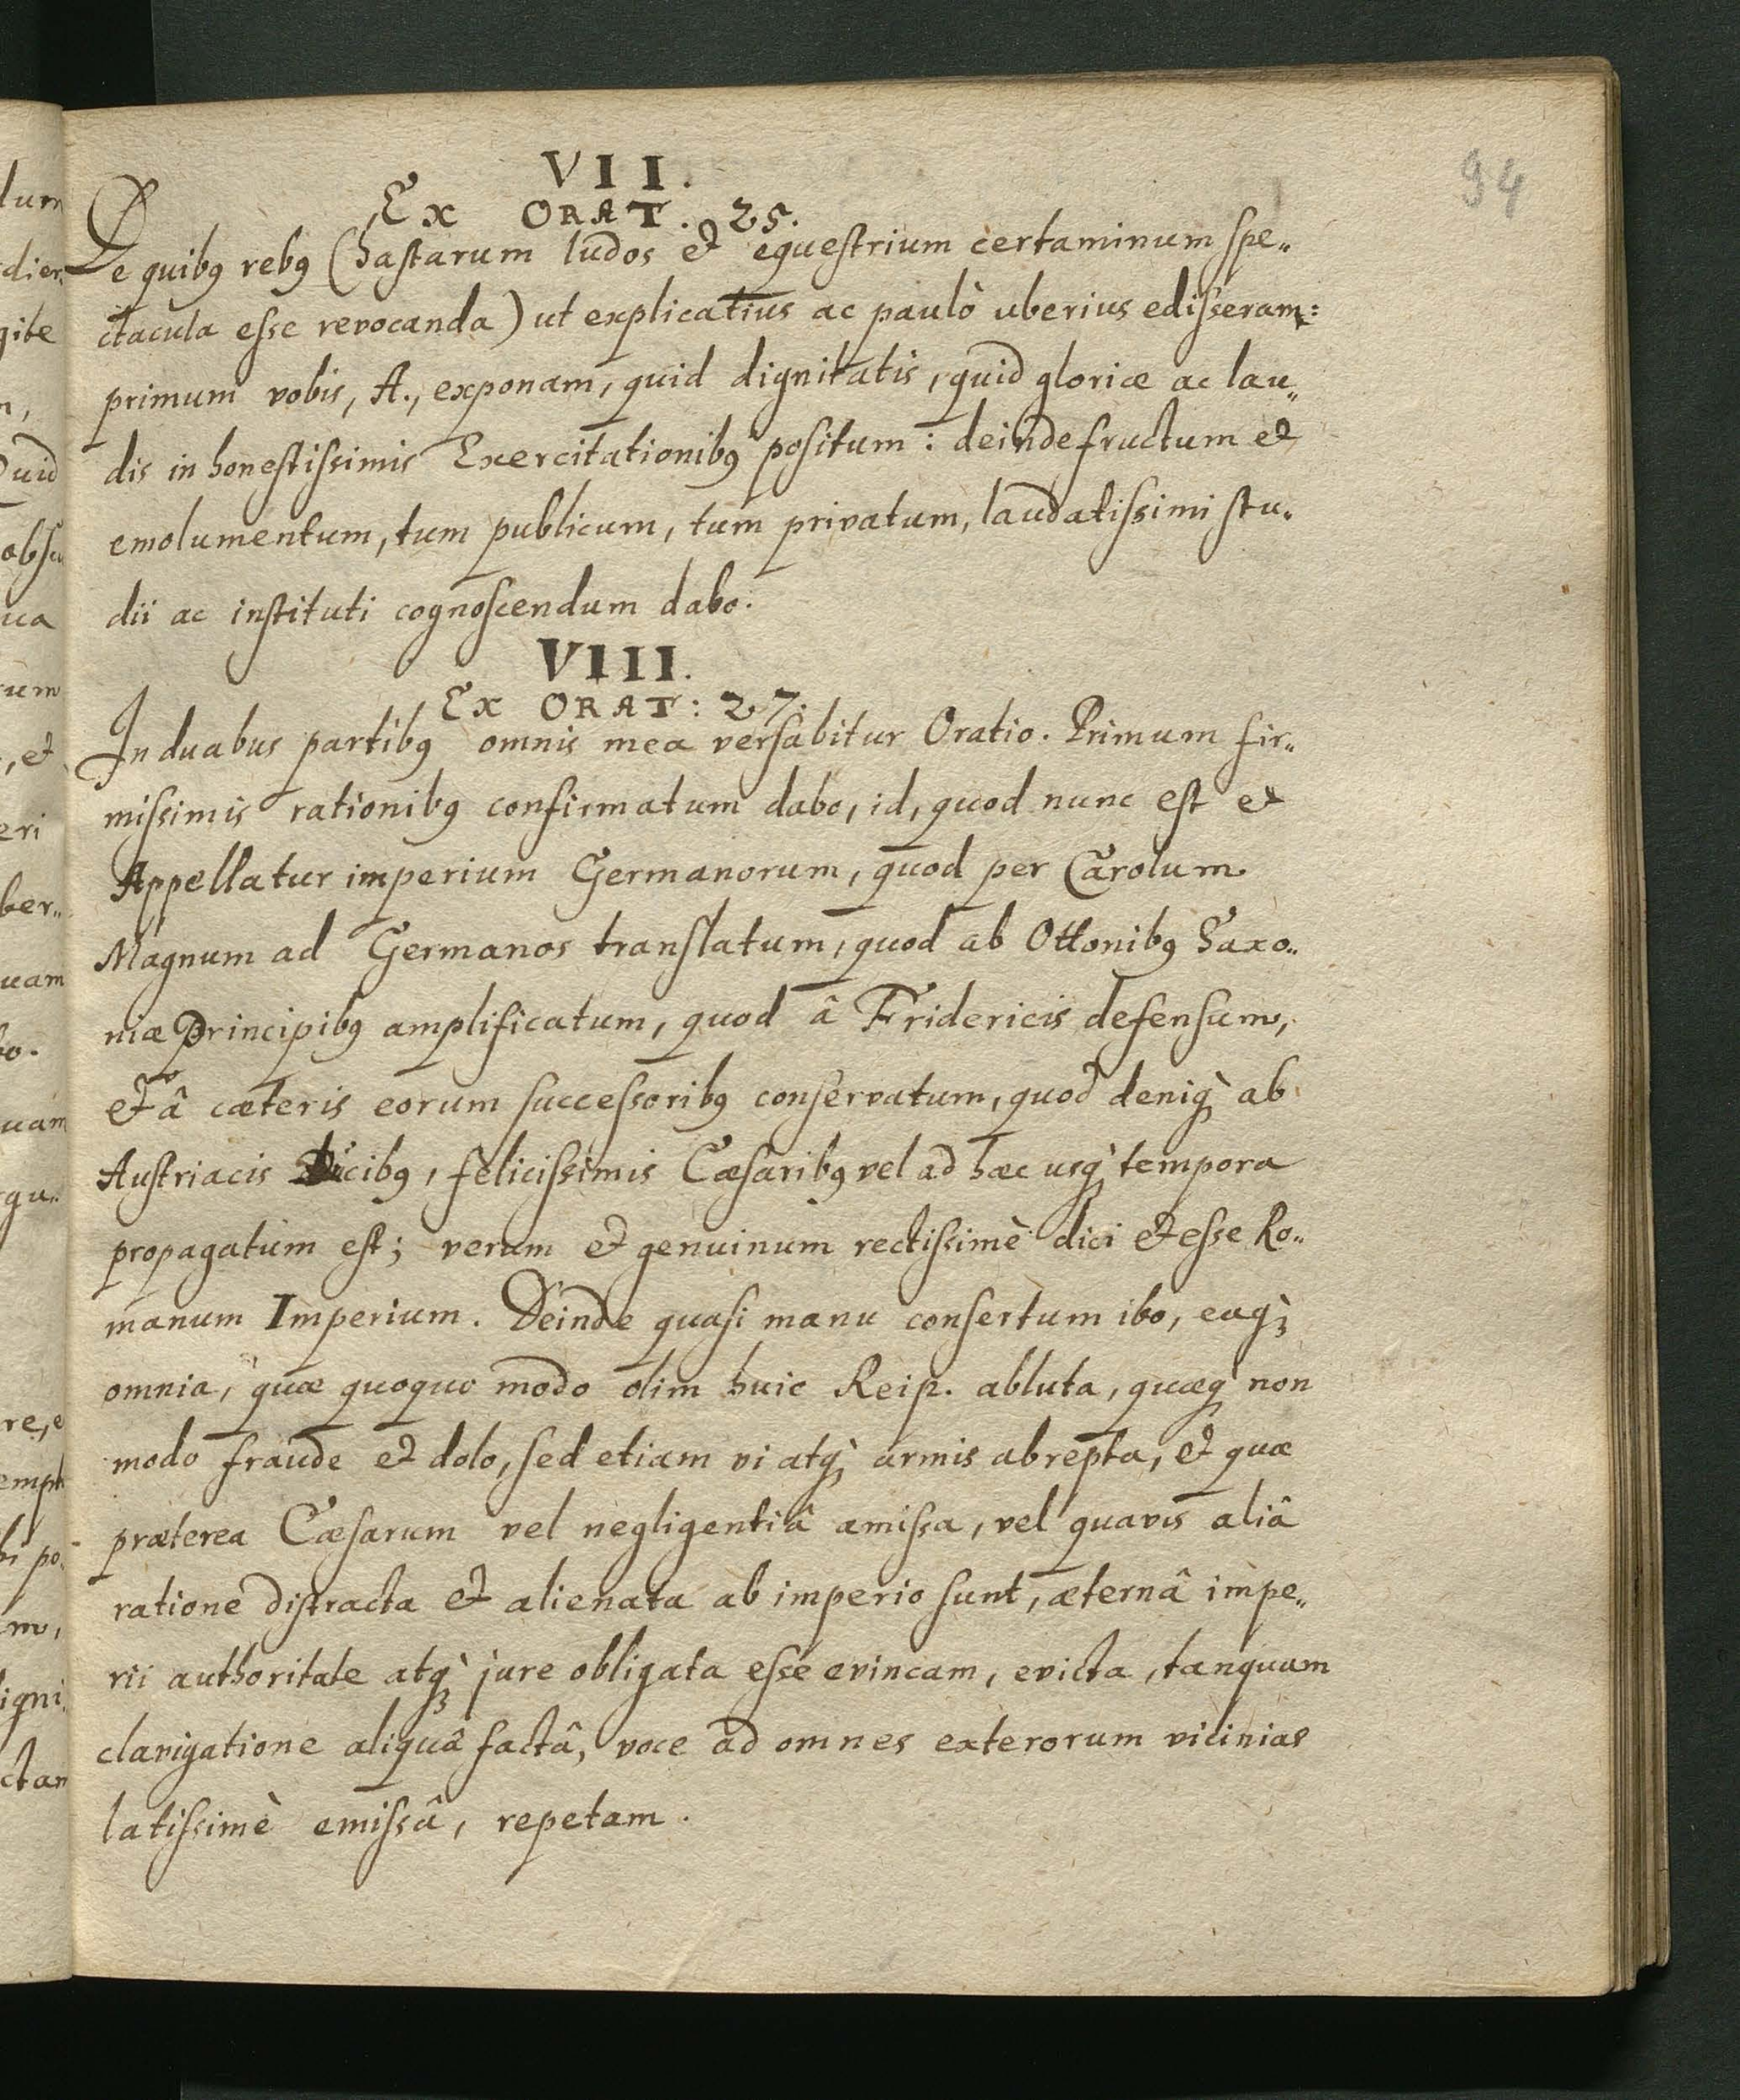 94
VII.
Ex ORAT. 25.
De quibꝰ rebꝰ (hastarum ludos et equestrium certaminum spe„
ctacula esse revocanda) ut explicatius ac paulò uberius edisseram:
primum vobis, A., exponam, quid dignitatis, quid gloriæ ac lau„
dis in honestissimis Exercitationibꝰ positum: deinde fructum et
emolumentum, tum publicum, tum privatum, laudatissimi stu„
dii ac instituti cognoscendum dabo.
VIII.
Ex ORAT: 27.
In duabus partibꝰ omnis mea versabitur Oratio. Primum fir„
missimis rationibꝰ confirmatum dabo, id, quod nunc est et
Appellatur imperium Germanorum, quod per Carolum
Magnum ad Germanos translatum, quod ab Ottonibꝰ Saxo„
niæ Principibꝰ amplificatum, quod â Fridericis defensum,
et â cæteris eorum successoribꝰ conservatum, quod deniqꝫ̀ ab
Austriacis Ducibꝰ, felicissimis Cæsaribꝰ vel ad hæc usqꝫ̀ tempora
propagatum est; verum et genuinum rectissimè dici et esse Ro„
manum Imperium. Deinde quasi manu consertum ibo, eaqꝫ̀
omnia, quæ quoquo modo olim huic Reip. abluta, quæqꝫ̀ non
modo fraude et dolo, sed etiam vi atqꝫ̀ armis abrepta, et quæ
præterea Cæsarum vel negligentiâ amissa, vel quavis aliâ
ratione distracta et alienata ab imperio sunt, æternâ impe„
rii authoritate atqꝫ̀ jure obligata esse evincam, evicta, tanquam
clarigatione aliquâ factâ, voce ad omnes exterorum vicinias
latissimè emissâ, repetam.